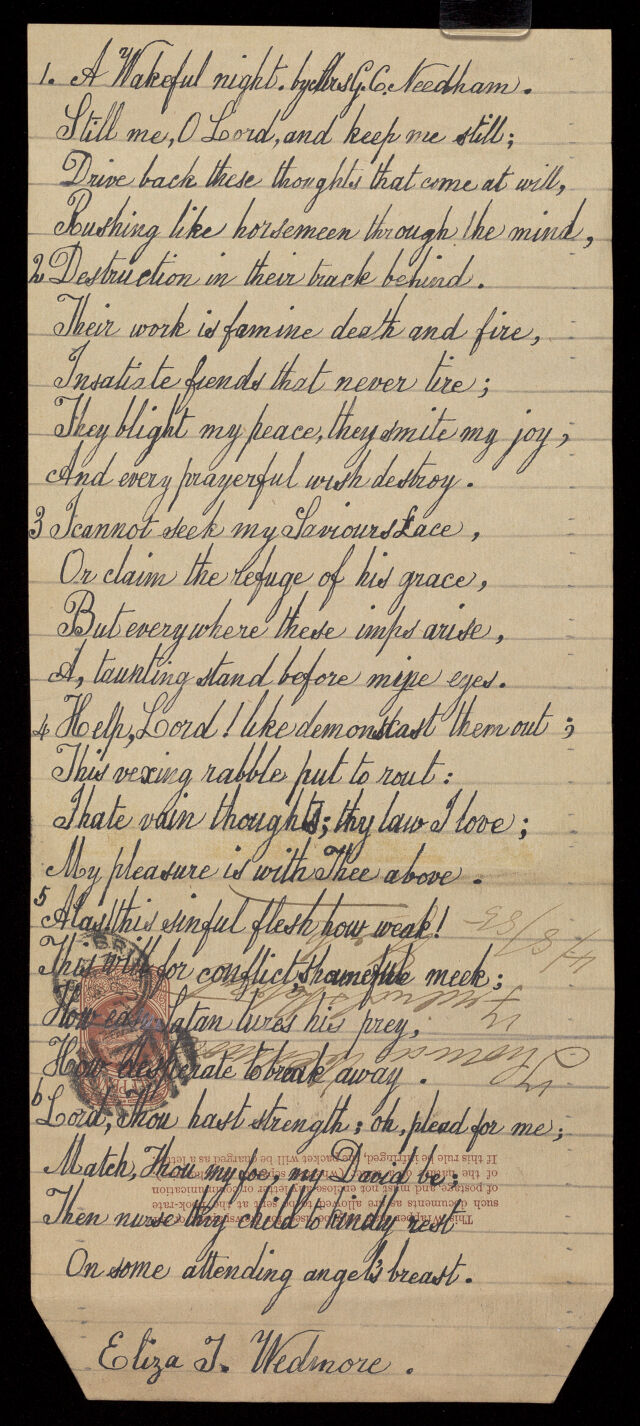 1. A Wakeful night. by Mrs G. C. Needham.
Still me, O Lord, and keep me still;
Drive back these thoughts that come at will,
Rushing like horsemeen through the mind,
2 Destruction in their track behind.
Their work is famine death and fire,
Insatiate fiends that never tire;
They blight my peace, they smite my joy,
And every prayerful wish destroy.
3 I cannot seek my Saviours face,
Or claim the refuge of his grace,
But everywhere these imps arise,
A, taunting stand before mine eyes.
4 Help, Lord! like demons cast them out;
This vexing rabble put to rout:
I hate vain thoughts; thy law I love;
My pleasure is with Thee above.
5 Alas! this sinful flesh how weak!
This will for conflict, shameful meek;
How easy Satan lures his prey,
How desperate to break away.
6 Lord, Thou hast strength; oh, plead for me;
Match, Thou my foe, my David be;
Then nurse thy child to kindly rest
On some attending angel's breast.
Eliza T. Wedmore.
This Wrapper
such documents as are allowed to be sent at the Book-rate
of postage and must not enclose any letter or communication
of the nature of a letter
If this rule be infringed, the packet will be charged as a letter